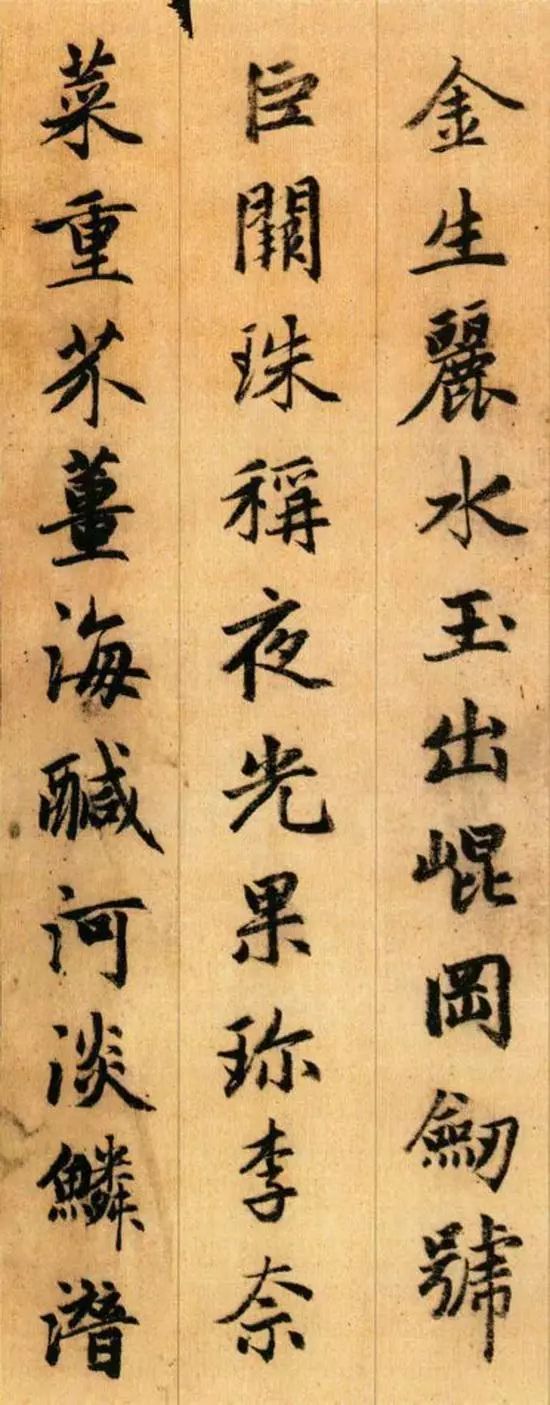 金生麗水玉出崐岡劒號
巨闕珠稱夜光果珎李奈
菜重芥薑海醎河淡鱗潛